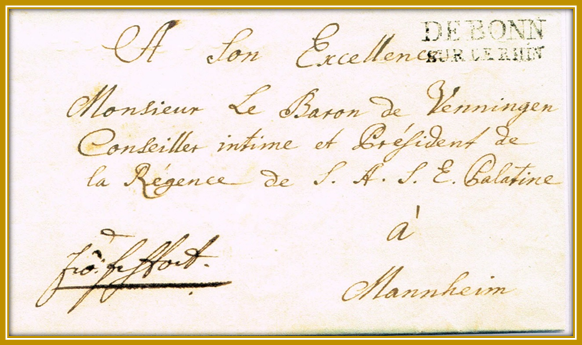 DE BONN
SUR LE RHIN
A Son Excellence
Monsieur Le Baron de Venningen
Conseiller intime et Président de
la Régence de S. A. S. E. Palatine
à
Mannheim